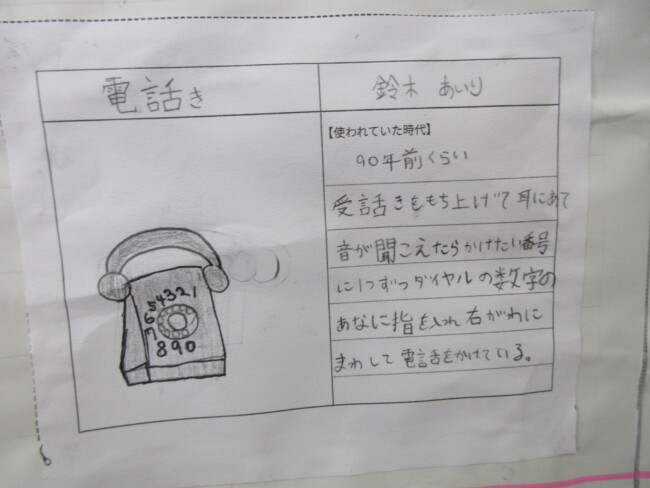 電話き
鈴木 あいり
【使われていた時代】
90年前くらい
受話きをもち上げて耳にあて
音が聞こえたらかけたい番号
に1つずつダイヤルの数字の
あなに指を入れ右がわに
まわして電話をかけている。
54321
890